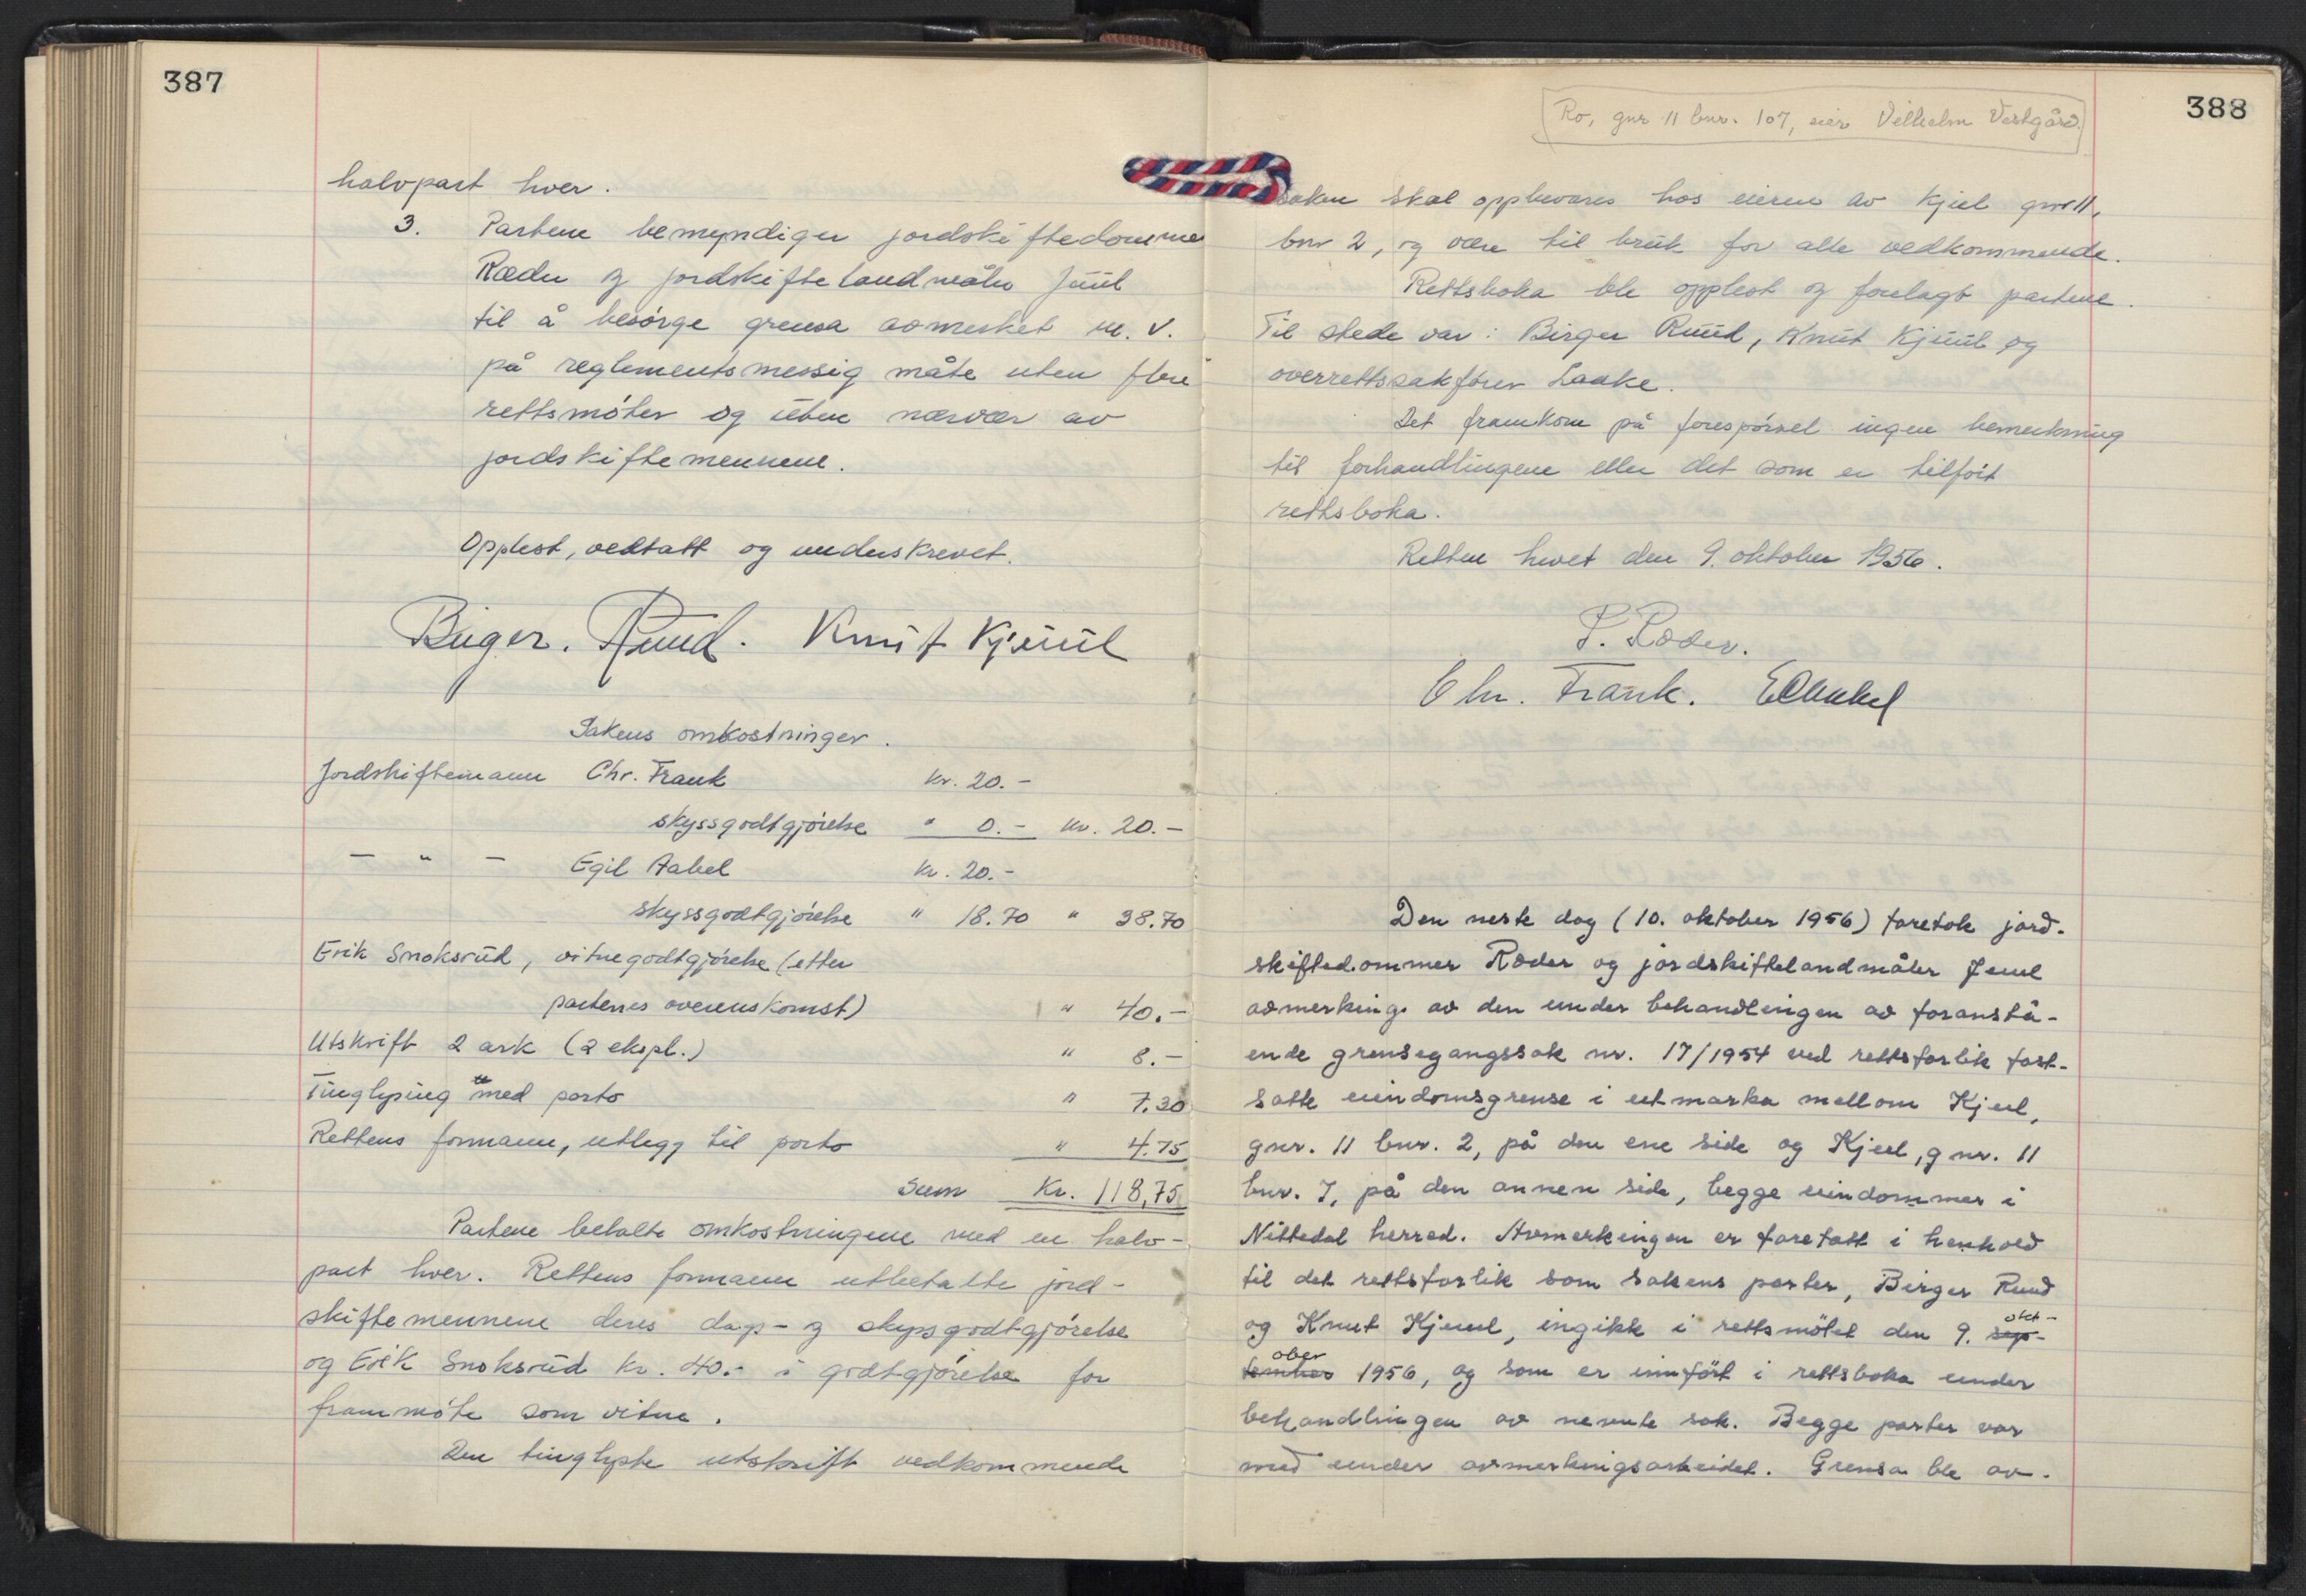 387
halvpart hver.
3. Partene bemyndiger jordskiftedommer
Ræder og jordskiftelandmåler Juul
til å besørge grensa avmerket m.v.
på reglementsmessig måte uten flere
rettsmøter og uten nærvær av
jordskiftemennene.
Opplest, vedtatt og underskrevet.
Birger. Ruud. Knut Kjuul
Sakens omkostninger.
Jordskiftemann Chr. Frank kr. 20.-
skyssgodtgjørelse " 0.- kr. 20.-
— " — Egil Aabel kr. 20.-
skyssgodtgjørelse " 18.70 " 38.70
Erik Snoksrud, vitnegodtgjørelse (etter
partenes overenskomst) " 40.-
Utskrift 2 ark (2 ekspl.) " 8.-
Tinglysing med porto " 7.30
Rettens formann, utlegg til porto " 4.75
Sum Kr. 118,75
Partene betalte omkostningene med en halv-
part hver. Rettens formann utbetalte jord-
skiftemennene deres dags- og skyssgodtgjørelse
og Erik Snoksrud kr. 40.- i godtgjørelse for
frammøte som vitne.
Den tinglyste utskrift vedkommende
388
Ro, gnr 11 bnr. 107, eier Vilhelm Vestgård.
saken skal oppbevares hos eieren av Kjul gnr 11,
bnr 2, og være til bruk for alle vedkommende.
Rettsboka ble opplest og forelagt partene.
Til stede var: Birger Ruud, Knut Kjuul og
overrettssakfører Laake.
Det framkom på forespørsel ingen bemerkning
til forhandlingene eller det som er tilført
rettsboka.
Retten hevet den 9. oktober 1956.
P. Ræder.
Chr. Frank. E Aabel
Den neste dag (10. oktober 1956) foretok jord-
skiftedommer Ræder og jordskiftelandmåler Juul
avmerking av den under behandlingen av foranstå-
ende grensegangssak nr. 17/1954 ved rettsforlik fast-
satte eiendomsgrense i utmarka mellom Kjul,
gnr. 11 bnr. 2, på den ene side og Kjul, gnr. 11
bnr. 7, på den annen side, begge eiendommer i
Nittedal herred. Avmerkingen er foretatt i henhold
til det rettsforlik som sakens parter, Birger Ruud
og Knut Kjuul, inngikk i rettsmøtet den 9. sep- okt-
tember ober 1956, og som er innført i rettsboka under
behandlingen av nevnte sak. Begge parter var
med under avmerkingsarbeidet. Grensa ble av-